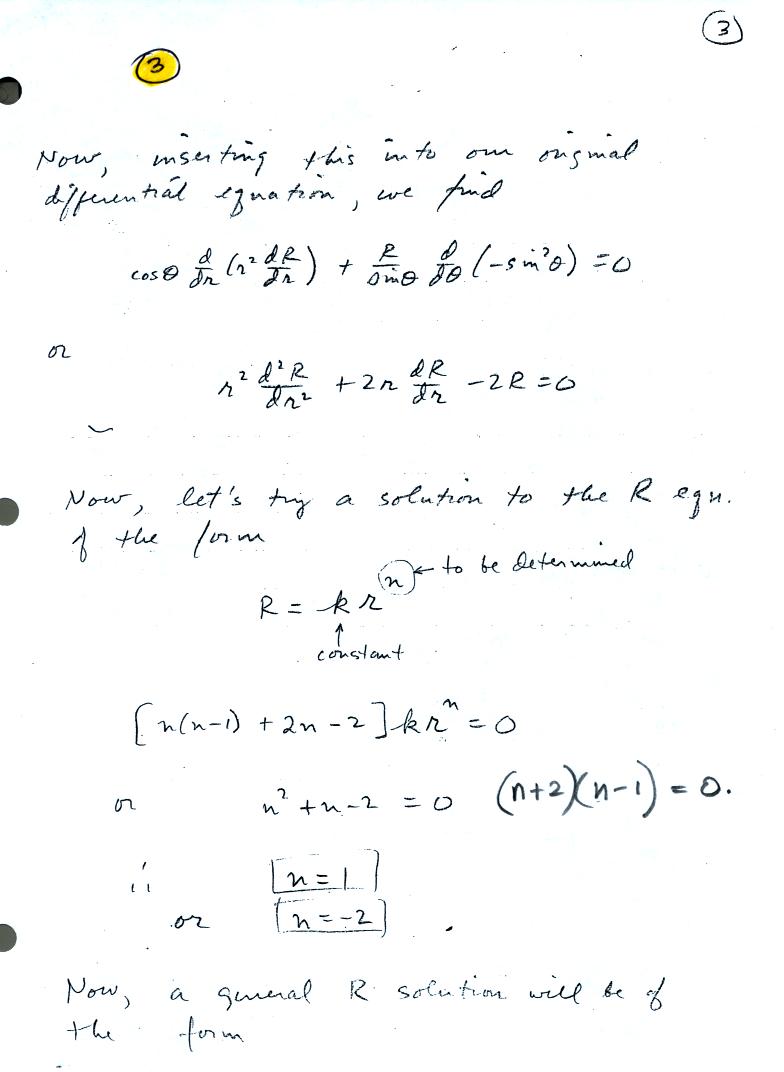 3
3
Now, inserting this into our original
differential equation, we find
cosθ d/dr (r² dR/dr) + R/sinθ d/dθ (-sin²θ) = 0
or
r² d²R/dr² + 2r dR/dr - 2R = 0
Now, let's try a solution to the R eqn.
of the form
R = k rⁿ ← to be determined
↑
constant
[n(n-1) + 2n - 2] k rⁿ = 0
or n² + n - 2 = 0 (n+2)(n-1) = 0.
∴ n = 1
or n = -2
Now, a general R solution will be of
the form